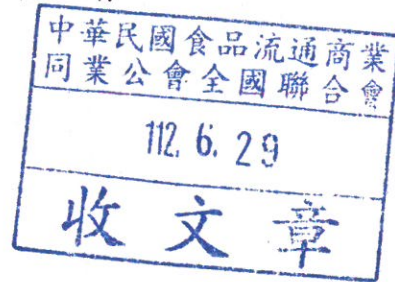 中華民國食品流通商業
同業公會全國聯合會
112. 6. 29
收文章